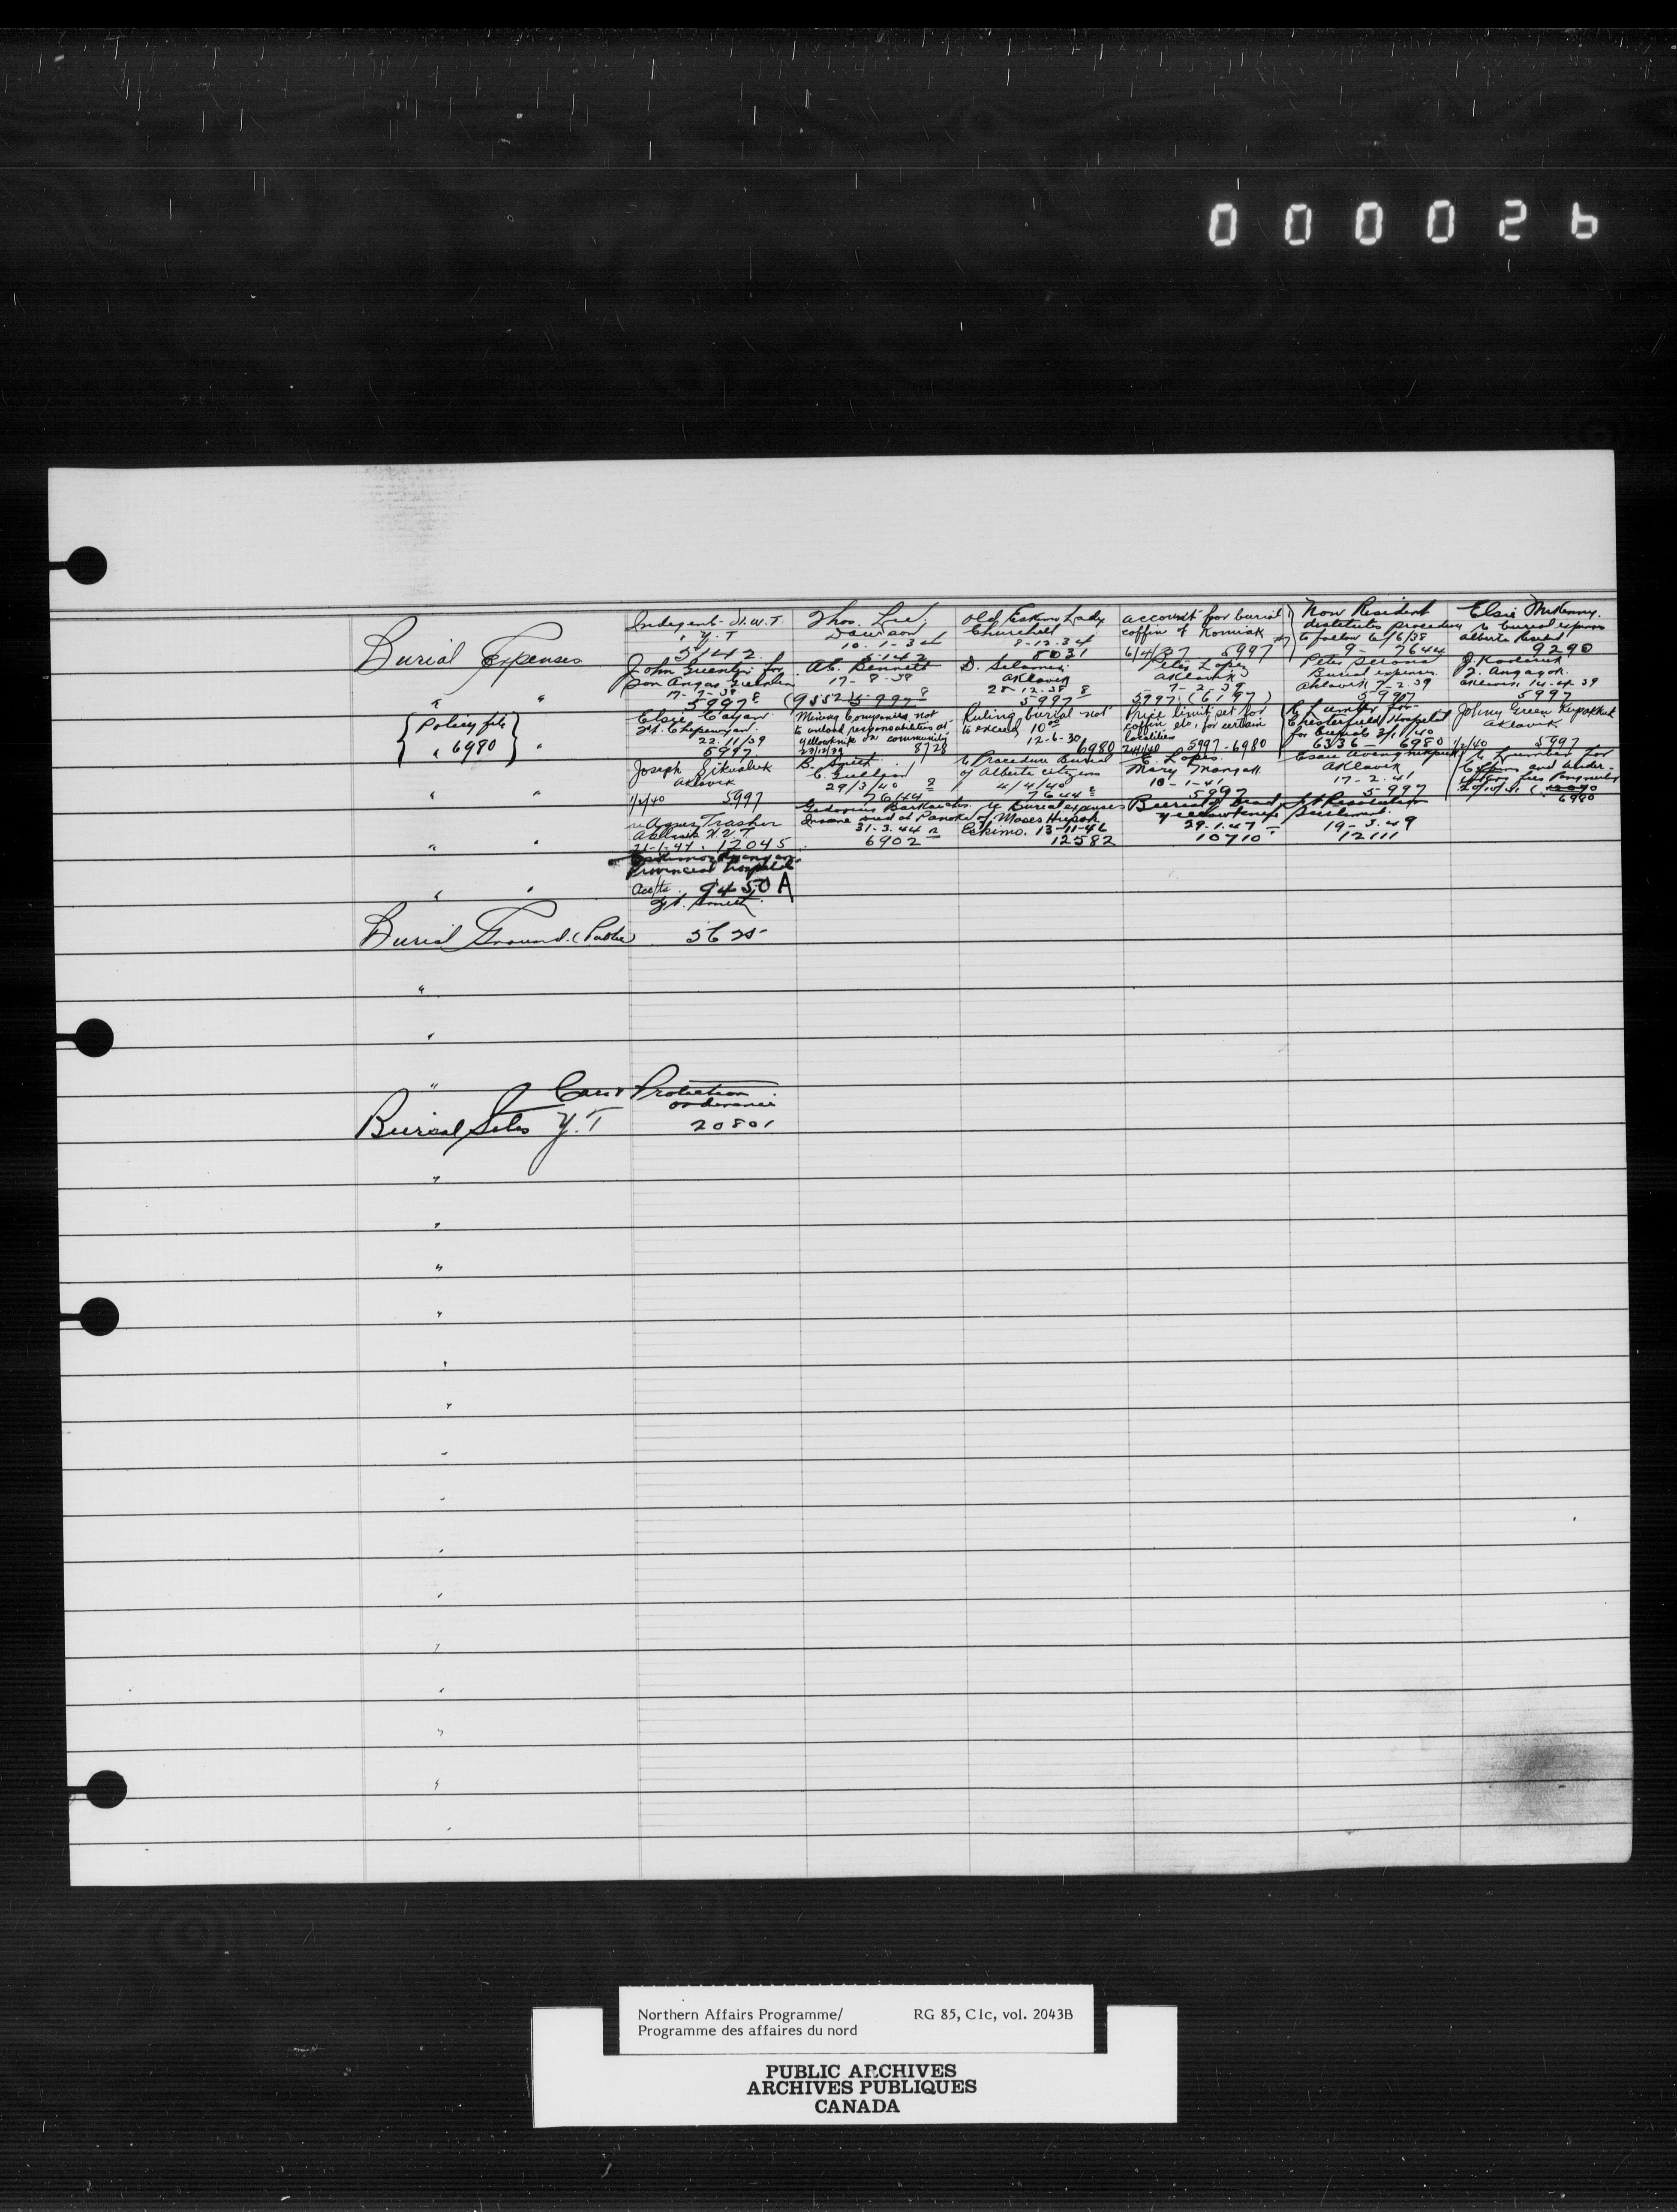 000026
Burial Expenses
Indegent N.W.T
" Y.T
5142
Thos. Lee,
Dawson
10-1-34
5142
Old Eskimo Lady
Churchill
8-12-34
8031
account for burial
coffin of Komiak
6/4/37 5997
Non Resident
destitutes procedure
to follow 6/6/38
9- 7644
Elsie McKenny.
re burial expenses
Alberta Resident
9290
" "
John
son Angus
17-9-38
5997
A.C. Bennett
17-8-38
(9552) 5997
D.
Aklavik
28-12-38
5997
Peter Lopez
Aklavik
7-2-39
5997 (6197)
Peter
Burial expenses
Aklavik 7-2-39
5997
J.
Z. Angagok
5997
{ Policy file } "
{ " 6980 }
Elsie
Ft. Chipewyan
22.11/39
5997
Mining Companies not
to unload responsibilities at
Yellowknife on community
8728
Ruling burial not
to exceed 10.00
12-6-30
6980
Price limit set for
coffins etc, for certain
localities
5997-6980
Chesterfield Hospital
for burials 3/11/40
6336 - 6980
Johny Green Kupakkuk
Aklavik
1/2/40 5997
" "
Joseph
Aklavik
1/2/40 5997
B. Smith
29/3/40
7644
re Procedure Burial
of Alberta citizens
4/4/40
7644
C. Lopez
Mary Mangak
10-1-41
5997
Aklavik
17-2-41
5997
re Lumber for
Coffins and under-
6980
" "
re Agnes Trasher
Aklavik N.W.T
21-1-44. 12045
Insane died at Ponoka
31-3-44
6902
re Burial expenses
of Moses
Eskimo. 13-11-46
12582
Burial of Dead,
Yellowknife
29.1.47
10710
Ft Resolution
Settlement
19-3-49
12111
" "
Provincial hospital
Accts. 9450A
Ft. Smith
Burial Ground. (Public)
"
"
"
Burial Sites Y.T
Care & Protection
ordinance
20801
Northern Affairs Programme/ RG 85, C1c, vol. 2043B
Programme des affaires du nord
PUBLIC ARCHIVES
ARCHIVES PUBLIQUES
CANADA